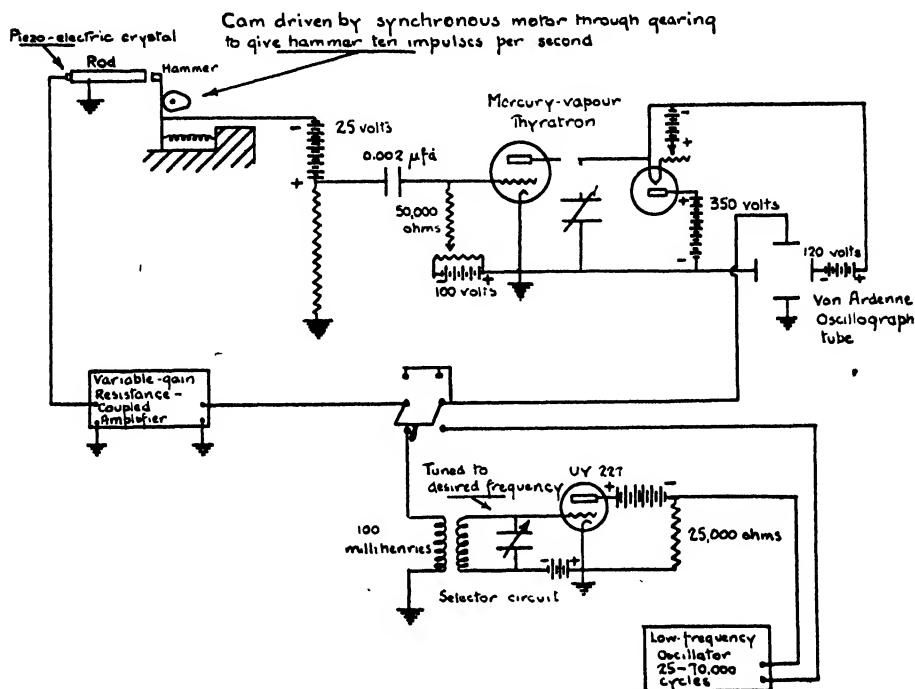 Cam driven by synchronous motor through gearing
to give hammer ten impulses per second
Piezo-electric crystal
Rod
Hammer
- 25 volts
+
0.002 µfd
50,000
ohms
- 100 volts +
Mercury-vapour
Thyratron
-
+
+
350 volts
-
120 volts
- +
Von Ardenne
Oscillograph
tube
Variable-gain
Resistance-
Coupled
Amplifier
Tuned to
desired frequency
UY 227
+ -
100
millihenries
25,000 ohms
- +
Selector circuit
Low-frequency
Oscillator
25-70,000
cycles